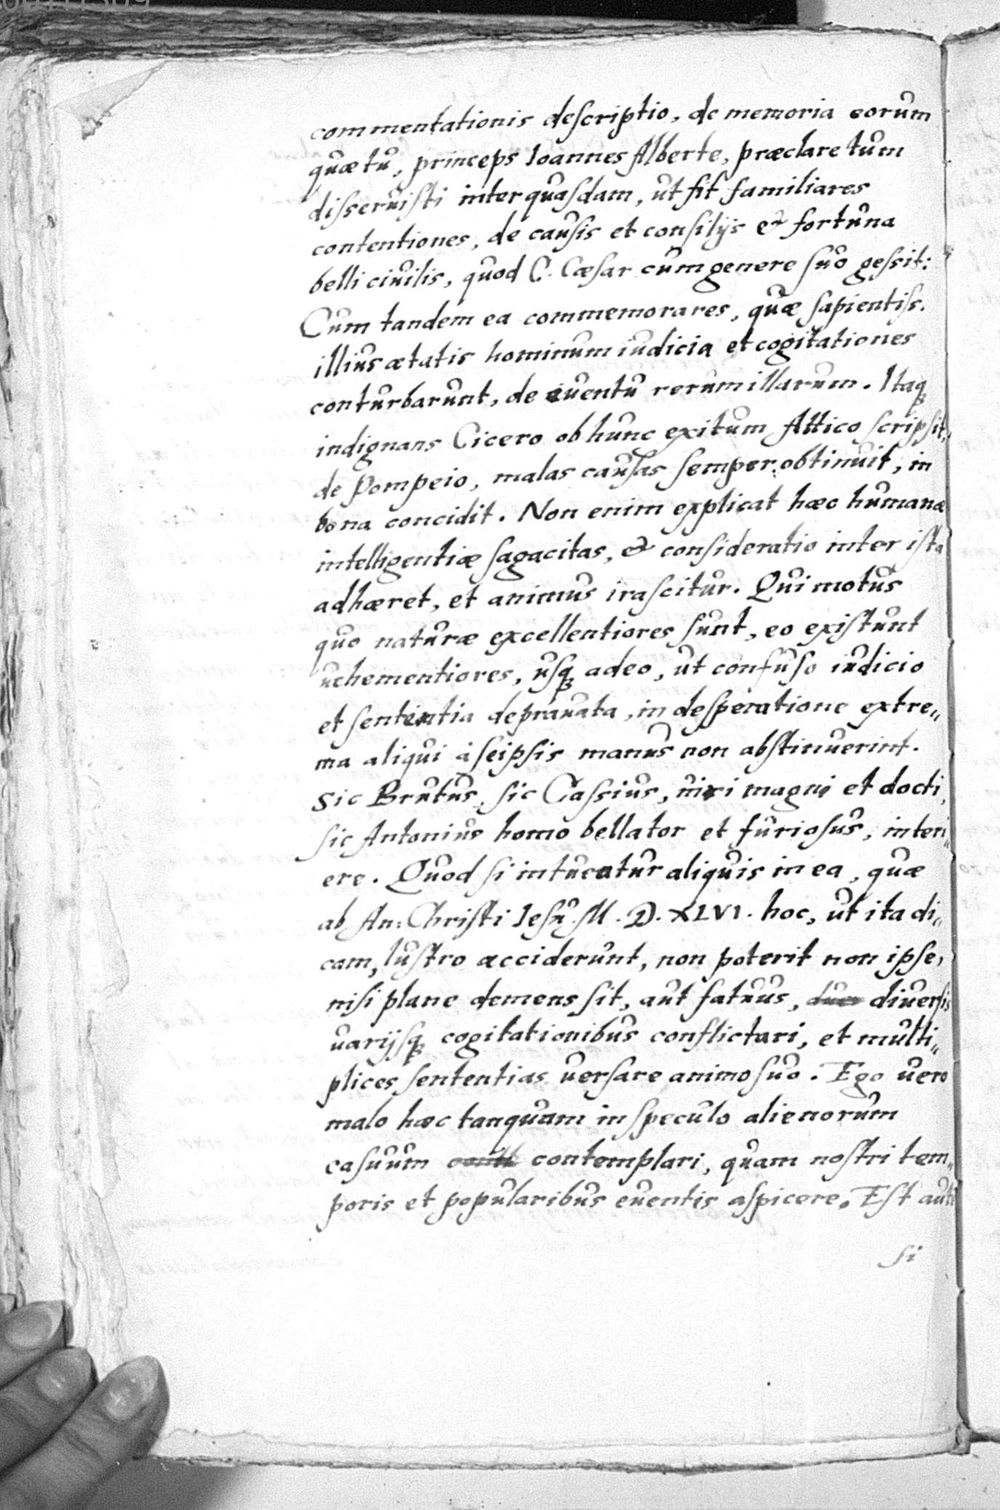 commentationis descriptio, de memoria eorum
quæ tu, princeps Ioannes Alberte, præclare tum
disseruisti inter quasdam, ut fit familiares
contentiones, de causis et consilijs & fortuna
belli ciuilis, quod C. Cæsar cum genere suo gessit:
Cum tandem ea commemorares, quæ sapientiss.
illius ætatis hominum iudicia et cogitationes
conturbarunt, de euentu rerum illarum. Itaq;
indignans Cicero ob hunc exitum Attico scripsit,
de Pompeio, malas causas semper obtinuit, in
bona concidit. Non enim explicat hæc humanæ
intelligentiæ sagacitas, & consideratio inter ista
adhæret, et animus irascitur. Qui motus
quo naturæ excellentiores sunt, eo existunt
uehementiores, usq; adeo, ut confuso iudicio
et sententia deprauata, in desperatione extre„
ma aliqui à seipsis manus non abstinuerint.
Sic Brutus, sic Cassius, uiri magni et docti,
sic Antonius homo bellator et furiosus, interi„
ere. Quod si intueatur aliquis in ea, quæ
ab An: Christi Iesu M. D. XLVI. hoc, ut ita di„
cam, lustro acciderunt, non poterit non ipse,
nisi plane demens sit, aut fatuus, diuersis
uarijsq; cogitationibus conflictari, et multi„
plices sententias uersare animo suo. Ego uero
malo hæc tanquam in speculo alienorum
casuum contemplari, quam nostri tem„
poris et popularibus euentis aspicere. Est aut
si